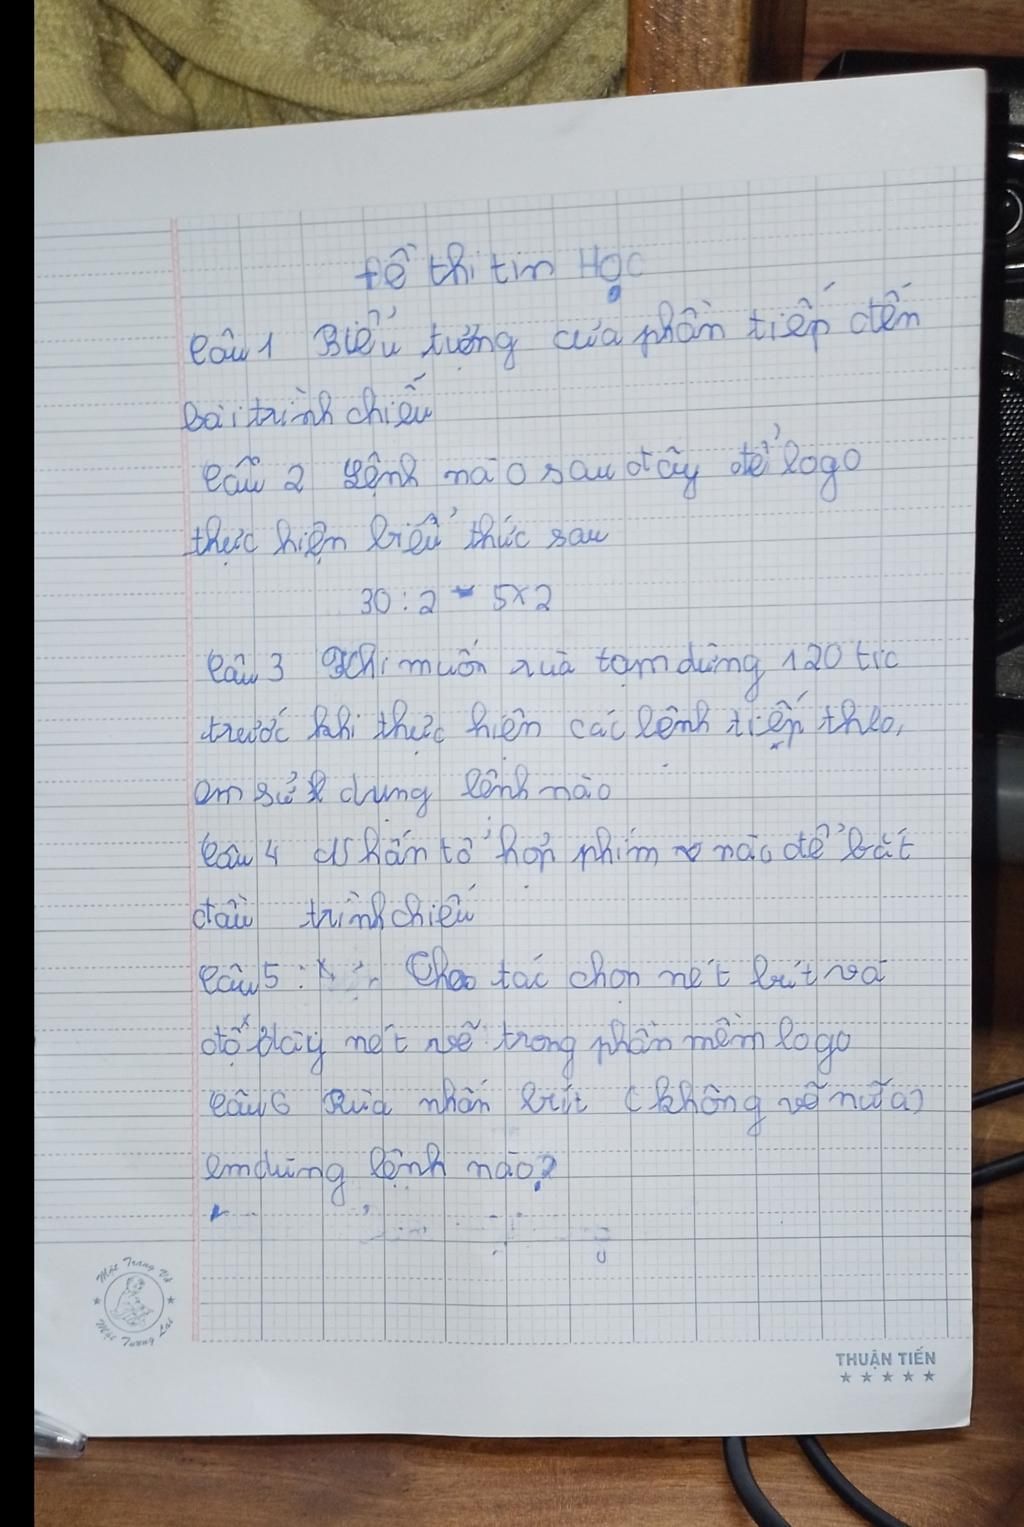 Đề thi tin Học
Câu 1 Biểu tượng của phần tiếp đến
bài trình chiếu
Câu 2 Lệnh nào sau đây để logo
thực hiện biểu thức sau
30 : 2 - 5x2
Câu 3 Khi muốn rùa tạm dừng 120 tíc
trước khi thực hiện các lệnh tiếp theo,
em sử dụng lệnh nào
Câu 4 Nhấn tổ hợp phím nào để bắt
đầu trình chiếu
Câu 5 : Thao tác chọn nét bút và
độ dày nét vẽ trong phần mềm logo
Câu 6 Rùa nhấn bút (không vẽ nữa)
em dùng lệnh nào?
Một Trang Vở
Một Tương Lai
THUẬN TIẾN